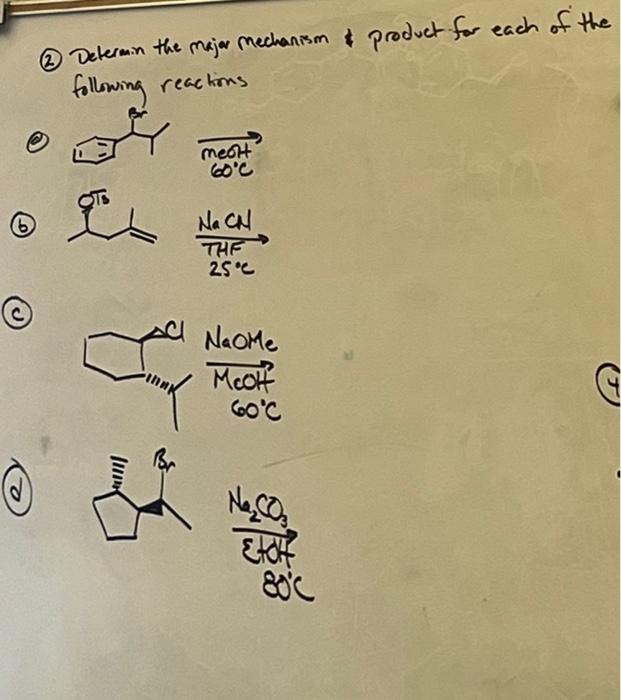 ② Determin the major mechanism & product for each of the
following reactions
ⓐ
Br
MeOH
60°C
ⓑ
OTs
NaCN
THF
25°C
ⓒ
Cl
NaOMe
MeOH
60°C
ⓓ
Br
Na₂CO₃
EtOH
80°C
④